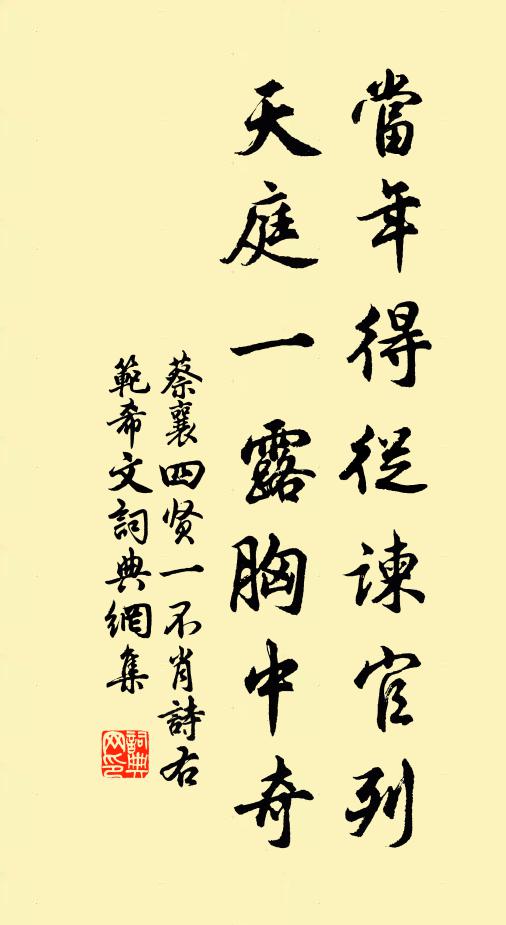 當年得從諫官列
天庭一露胸中奇
蔡襄四贤一不肖詩右
範希文詞典網集
詞典
网印